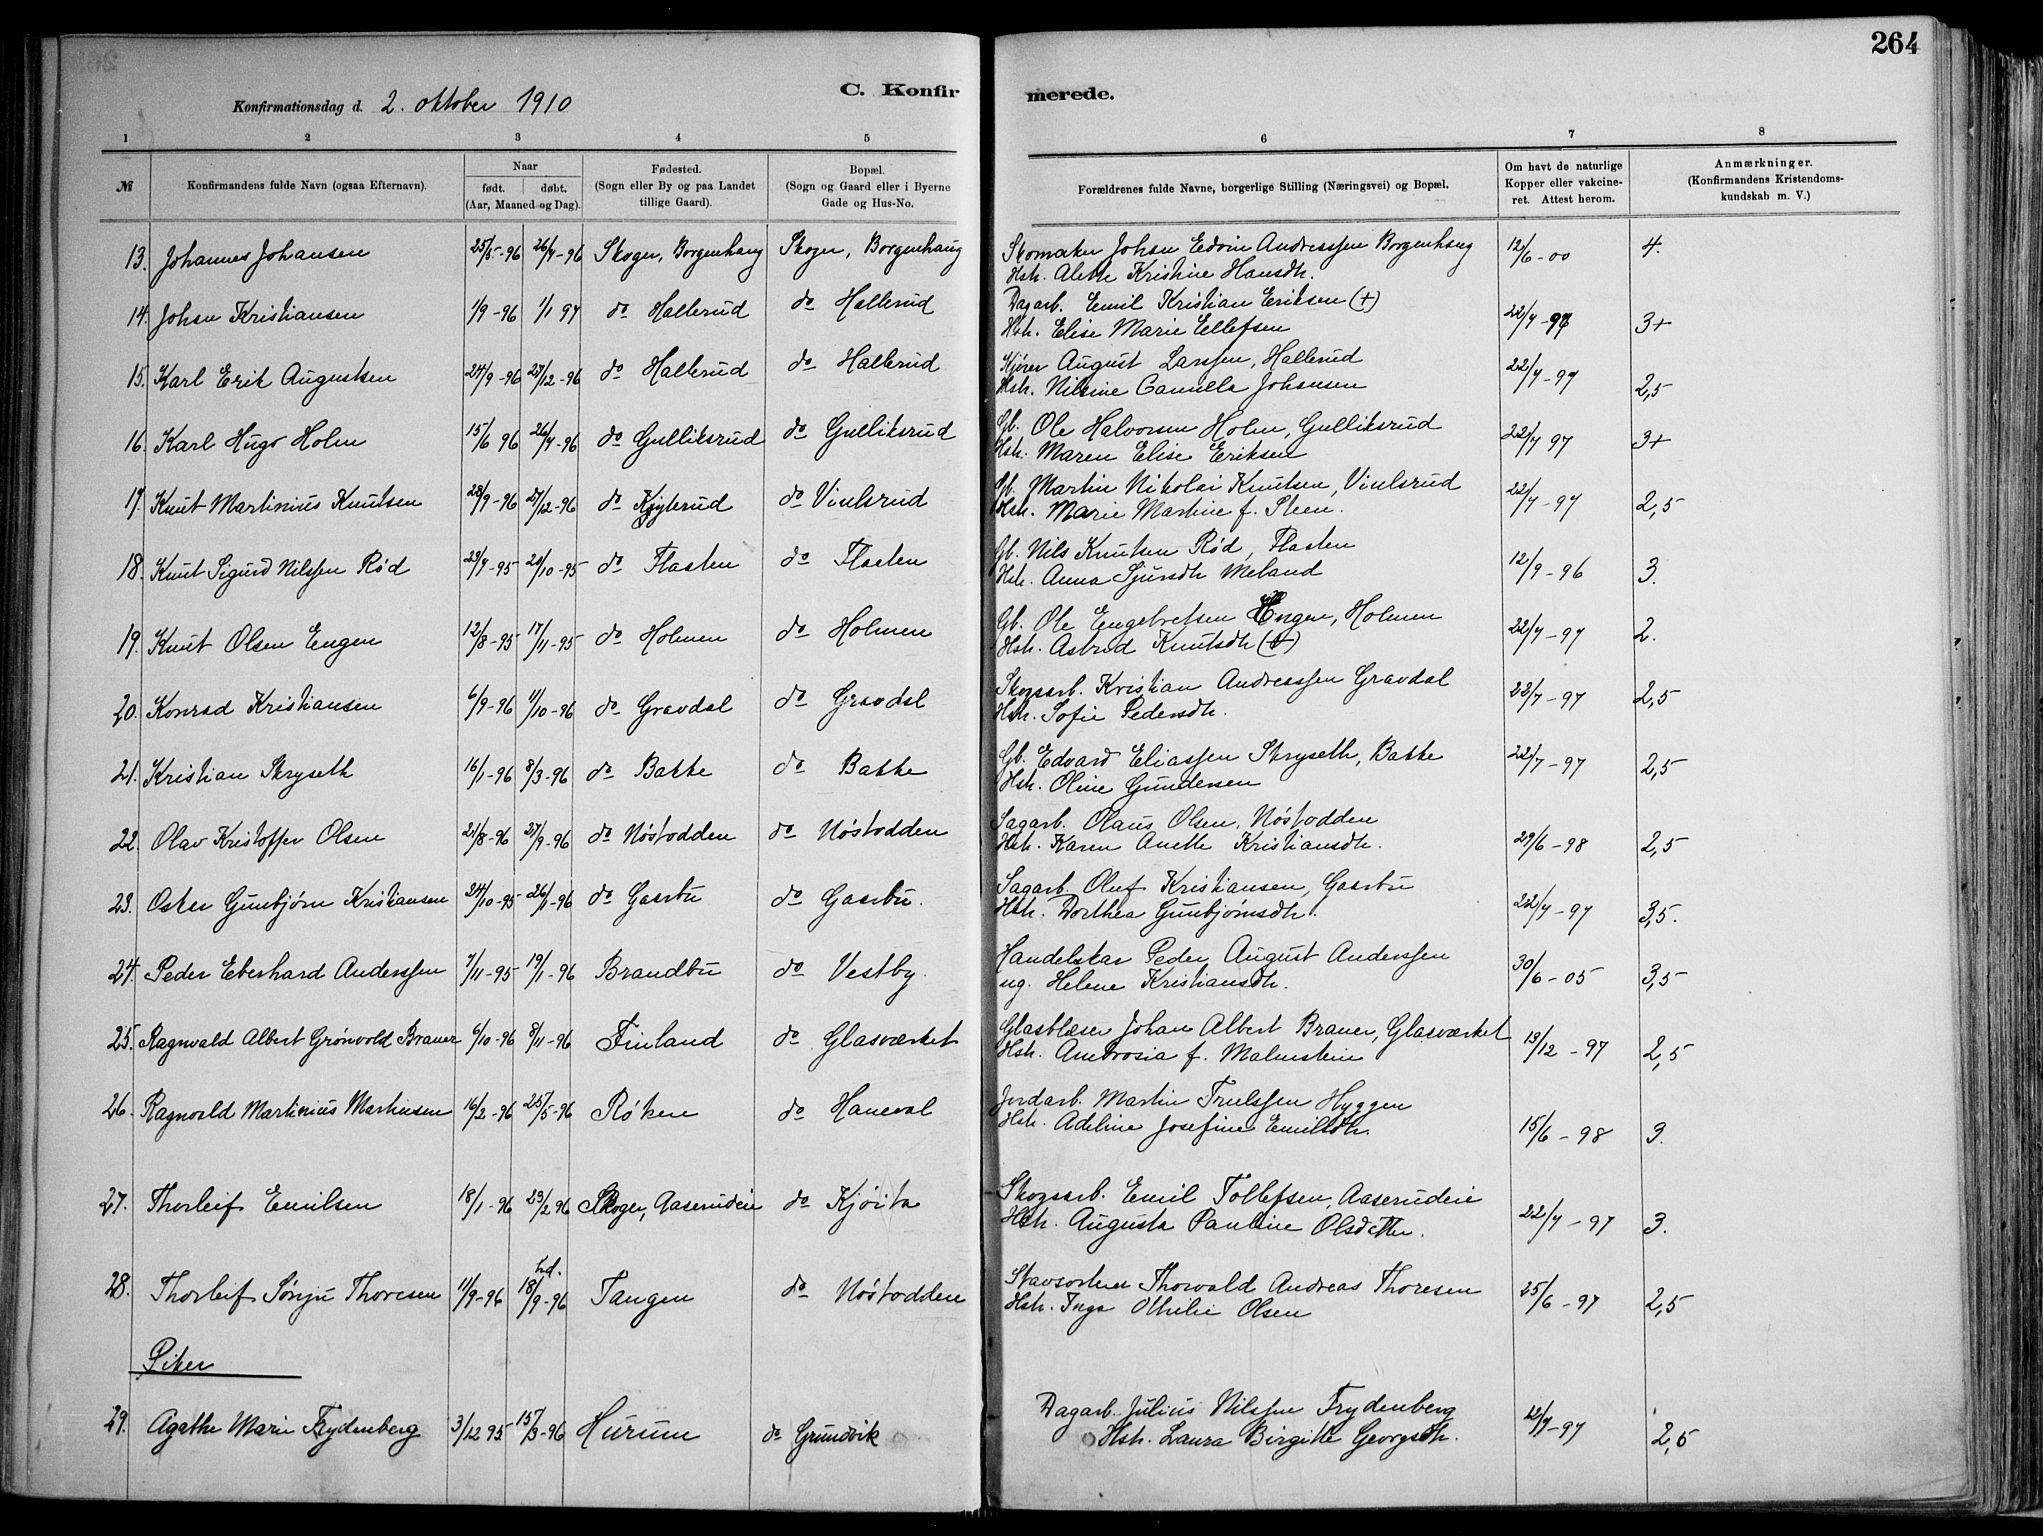 264
Konfirmationsdag d. 2. oktober 1910
C. Konfirmerede.
1 2 3 4 5 6 7 8
№ Konfirmandens fulde Navn (ogsaa Efternavn). Naar født. døbt. (Aar, Maaned og Dag). Fødested. (Sogn eller By og paa Landet tillige Gaard). Bopæl. (Sogn og Gaard eller i Byerne Gade og Hus-No. Forældrenes fulde Navne, borgerlige Stilling (Næringsvei) og Bopæl. Om havt de naturlige Kopper eller vakcineret. Attest herom. Anmærkninger. (Konfirmandens Kristendomskundskab m. V.)
13. Johannes Johansen 25/5-96 26/7-96 Skoger, Borgenhaug Skoger, Borgenhaug Skomaker Johan Edvin Andreassen Borgenhaug 12/6-00 4.
Hstr. Alette Kristine Hansdtr.
14. Johan Kristiansen 1/9-96 1/1 97 do Hallerud do Hallerud Dagarb. Emil Kristian Eriksen (+)
Hstr. Elise Marie Ellefsen 22/7-97 3+
15. Karl Erik Augustsen 24/9-96 27/12-96 do Hallerud do Hallerud Kjører August Larssen, Hallerud 22/7-97
Hstr. Nilsine Camilla Johansen 2,5
16. Karl Hugo Holm 15/6 96 26/7-96 do Gulliksrud do Gulliksrud Gb. Ole Halvorsen Holm, Gulliksrud 22/7 97 3+
Hstr. Maren Elise Eriksen
17. Knut Martinius Knutsen 28/9-96 27/12-96 do do Vinlsrud Gb. Martin Nikolai Knutsen, Vinlsrud 22/7-97 2,5
Hstr. Marie Martine f. Steen.
18. Knut Sigurd Nilssen Rød 29/7-95 20/10-95 do Flaaten do Flaaten Gb. Nils Knutsen Rød, Flaaten
Hstr. Anna Sjursdtr Meland 12/9-96 3.
19. Knut Olsen Engen 12/8-95 17/11-95 do Holmen do Holmen Gb. Ole Engebretsen Engen, Holmen
Hstr. Astrid Knutsdtr (+) 22/7-97 2.
20. Konrad Kristiansen 6/9-96 11/10-96 do Gravdal do Gravdal Skogsarb. Kristian Andreassen Gravdal 22/7-97 2,5
Hstr. Sofie Pedersdtr.
21. Kristian Skryseth 16/1-96 8/3-96 do Bakke do Bakke Gb. Edvard Eliassen Skryseth, Bakke 22/7-97 2,5
Hstr. Oline Gundersen
22. Olav Kristoffer Olsen 21/8-96 27/9-96 do Nøstodden do Nøstodden Sagarb. Olaus Olsen, Nøstodden
Hstr. Karen Anette Kristiansdtr. 29/6-98 2,5
23. Osker Gunbjørn Kristiansen 24/10-95 26/1-96 do Gaarbu do Gaarbu. Sagarb. Oluf Kristiansen, Gaarbu
Hstr. Dorthea Gunbjørnsdtr. 22/7-97 3,5.
24. Peder Eberhard Anderssen 7/11-95 19/1-96 Brandbu do Vestby. Handelskar Peder August Anderssen
ug. Helene Kristiansdtr. 30/6-05 3,5
25. Ragnvald Albert Grønvold Brauer 6/10-96 8/11-96 Finland do Glasværket Glasblæser Johan Albert Brauer, Glasværket
Hstr. Ambrosia f. Malmstein 13/12-97 2,5
26. Ragnvald Martinius Martinsen 16/2-96 25/5-96 Røken do Haneval Jordarb. Martin Trulssen Hyggen
Hstr. Adeline Josefine Emilsdtr. 15/6-98 3.
27. Thorleif Emilsen 18/1-96 23/2 96 Skoger, Aaserudeie do Kjøita Skogsarb. Emil Tollefsen, Aaserudeie
Hstr. Augusta Pauline Olsdatter. 22/7-97 3.
28. Thorleif Sønju Thoresen 11/9-96 hd. 18/9-96 Tangen do Nøstodden Stavsorterer Thorvald Andreas Thoresen
Hstr. Inga Othilie Olsen 25/6-97 2,5
Piker
29. Agathe Marie Frydenberg 3/12 95 15/3-96 Hurum do Grundvik Dagarb. Julius Nilssen Frydenberg
Hstr. Laura Birgitte Georgsdtr. 12/7-97 2,5